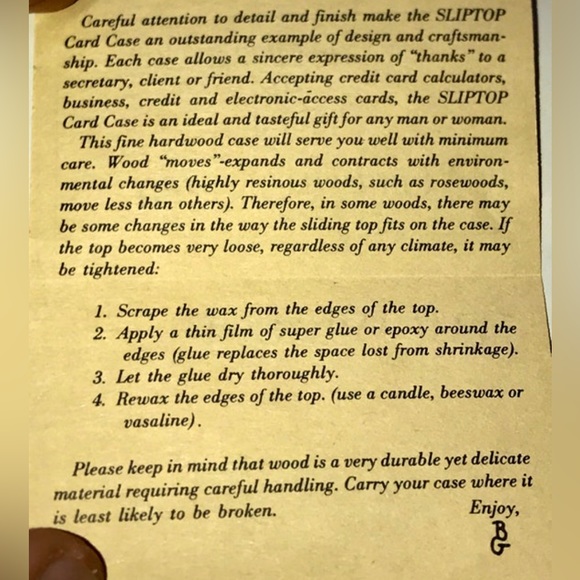 Careful attention to detail and finish make the SLIPTOP
Card Case an outstanding example of design and craftsman-
ship. Each case allows a sincere expression of "thanks" to a
secretary, client or friend. Accepting credit card calculators,
business, credit and electronic-access cards, the SLIPTOP
Card Case is an ideal and tasteful gift for any man or woman.
This fine hardwood case will serve you well with minimum
care. Wood "moves"-expands and contracts with environ-
mental changes (highly resinous woods, such as rosewoods,
move less than others). Therefore, in some woods, there may
be some changes in the way the sliding top fits on the case. If
the top becomes very loose, regardless of any climate, it may
be tightened:
1. Scrape the wax from the edges of the top.
2. Apply a thin film of super glue or epoxy around the
edges (glue replaces the space lost from shrinkage).
3. Let the glue dry thoroughly.
4. Rewax the edges of the top. (use a candle, beeswax or
vasaline).
Please keep in mind that wood is a very durable yet delicate
material requiring careful handling. Carry your case where it
is least likely to be broken.
Enjoy,
BG